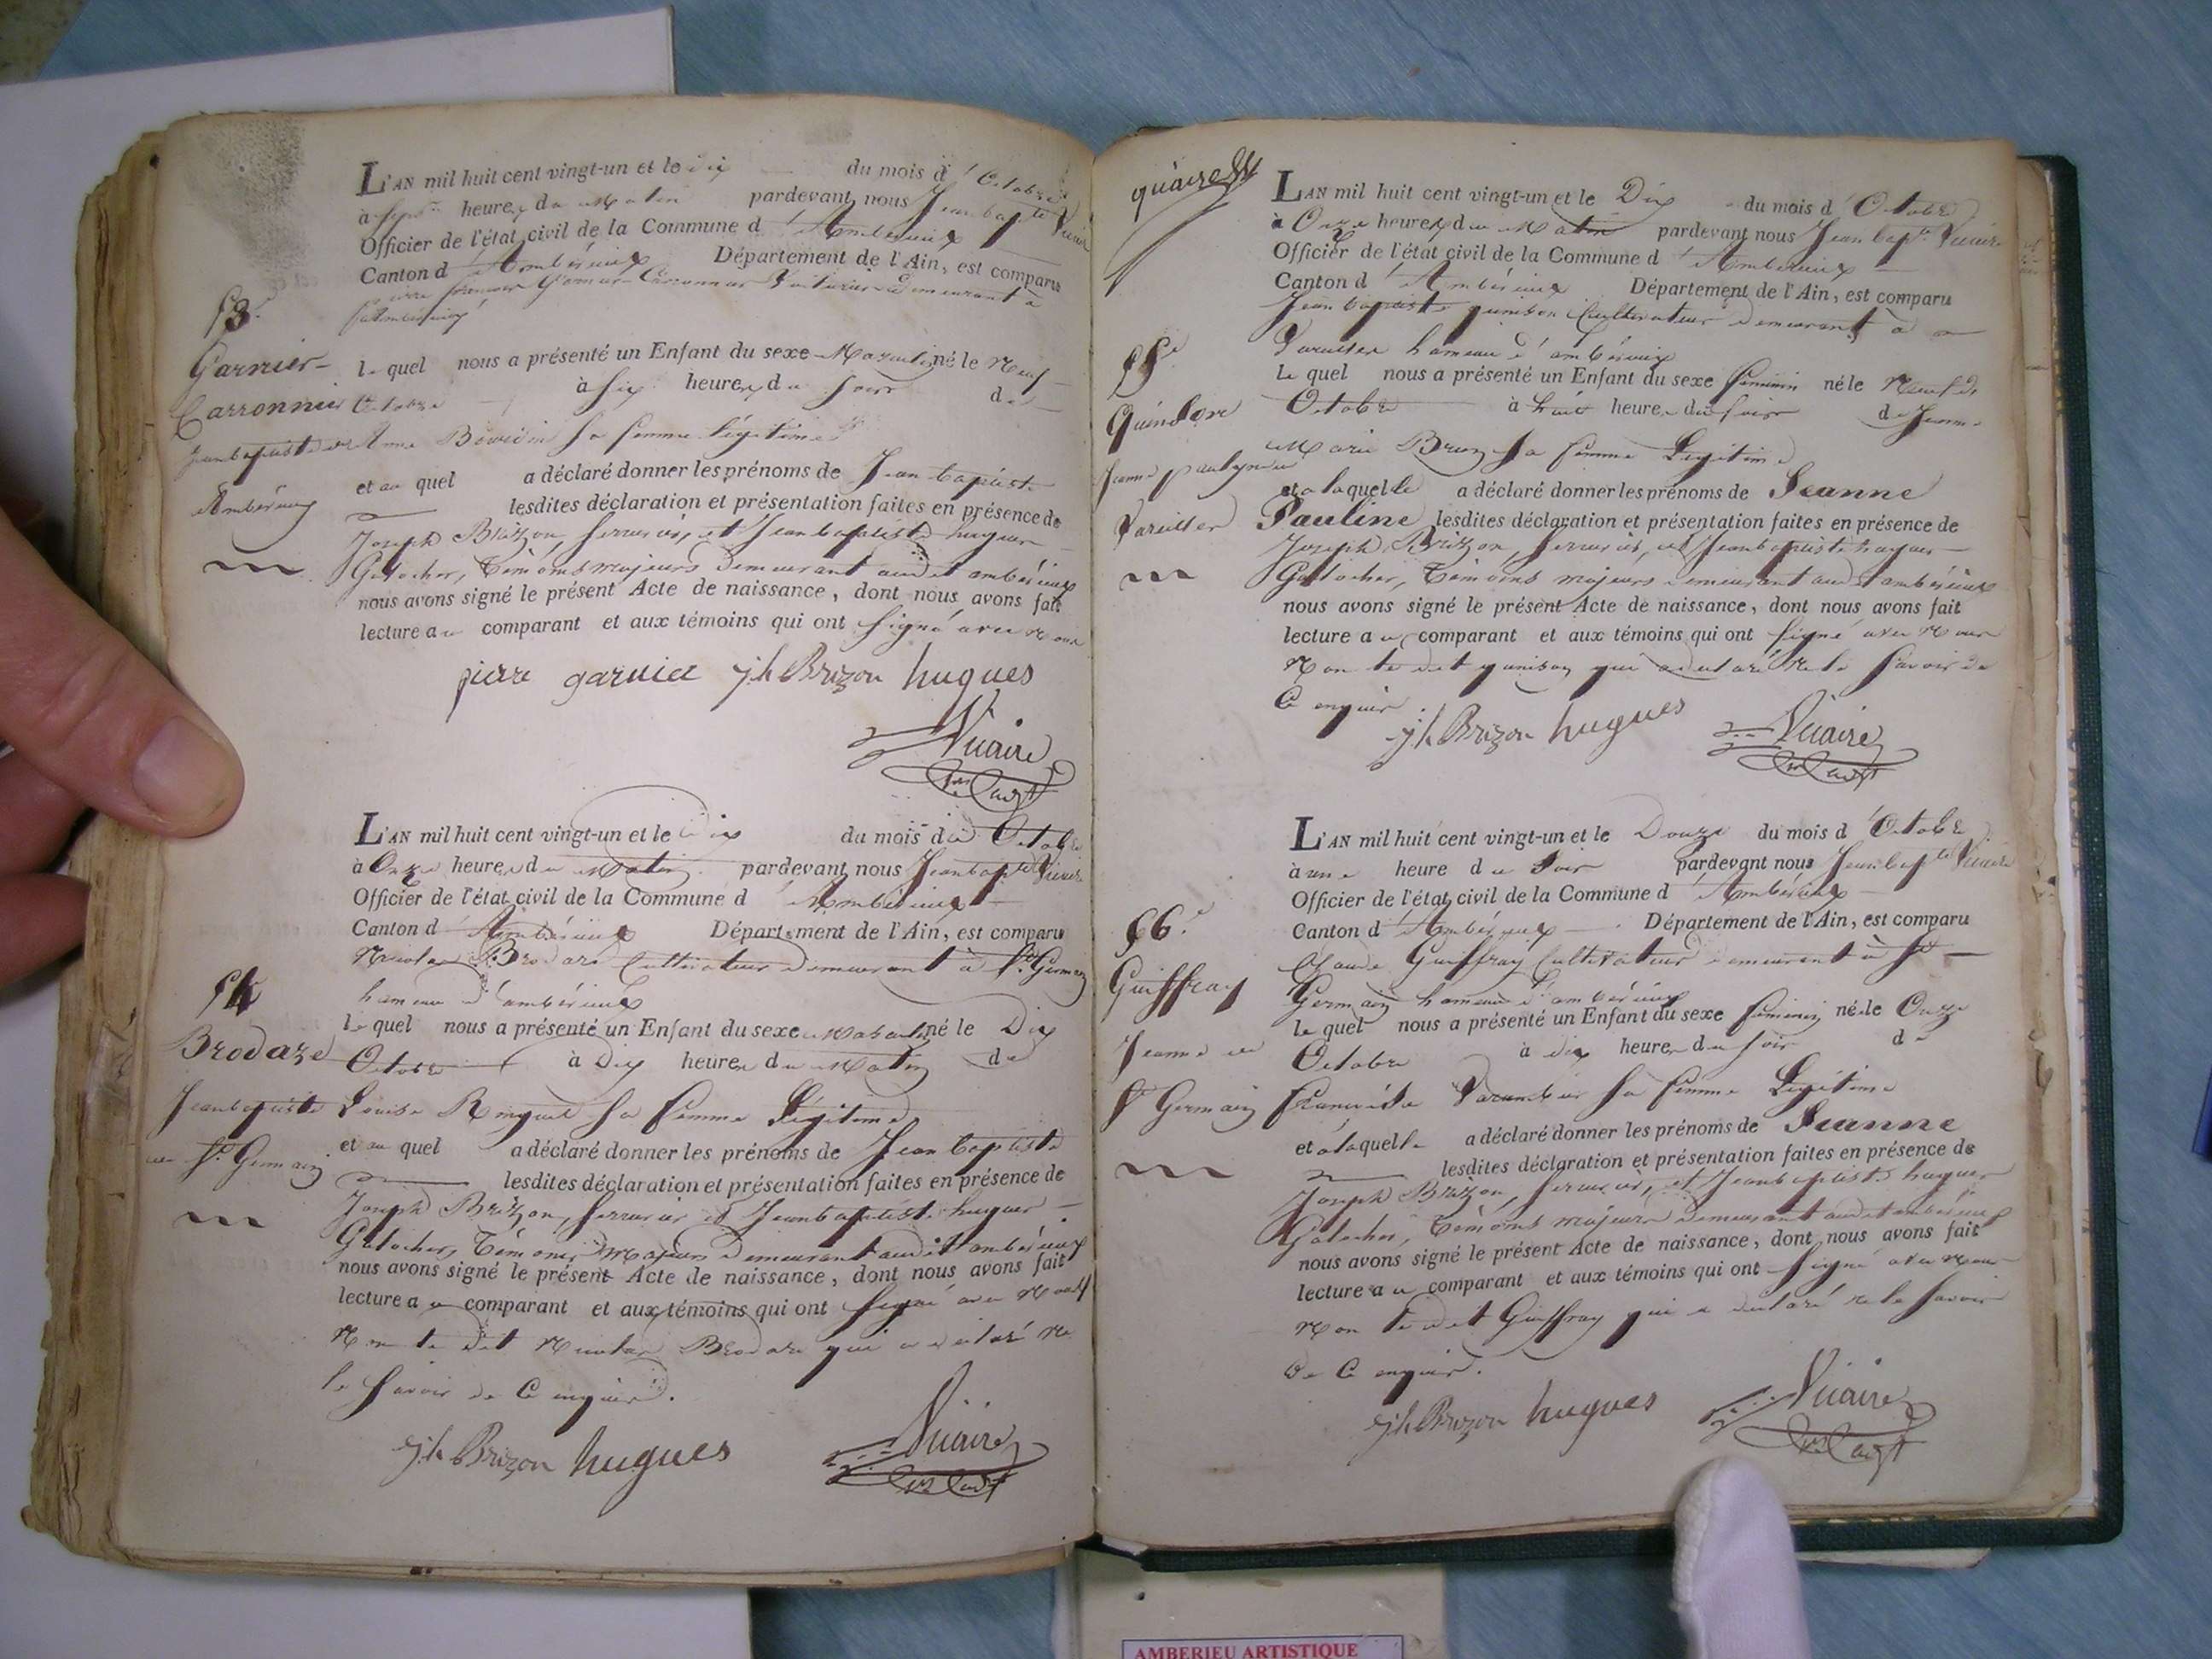 L'AN mil huit cent vingt-un et le dix du mois d'Octobre
à sept heures du Matin pardevant nous Jean bapte Vicaire
Officier de l'état civil de la Commune d'Ambérieux
Canton d'Ambérieux Département de l'Ain, est comparu
pierre garnier Carronnier Voiturier demeurant à
53e
Garnier
Carronnier
Jean baptiste
Ambérieux
le quel nous a présenté un Enfant du sexe Masculin né le Neuf
Octobre à Six heures du Soir de
Anne Sa femme légitime
et au quel a déclaré donner les prénoms de Jean baptiste
lesdites déclaration et présentation faites en présence de
Joseph Brizon, Serrurier, et Jean baptiste hugues
Galocher, témoins majeurs demeurant audit ambérieux
nous avons signé le présent Acte de naissance, dont nous avons fait
lecture au comparant et aux témoins qui ont Signé avec nous
pierre garnier jh Brizon hugues
Vicaire
L'AN mil huit cent vingt-un et le dix du mois d'Octobre
à Onze heures du Matin pardevant nous Jean bapte Vicaire
Officier de l'état civil de la Commune d'Ambérieux
Canton d'Ambérieux Département de l'Ain, est comparu
Nicolas Brodare Cultivateur demeurant à St Germain
hameau d'ambérieux
54
Brodare
Jean baptiste
St Germain
le quel nous a présenté un Enfant du sexe Masculin né le Dix
Octobre à Dix heures du Matin de
Louise Sa femme Légitime
et au quel a déclaré donner les prénoms de Jean baptiste
lesdites déclaration et présentation faites en présence de
Joseph Brizon, Serrurier et Jean baptiste hugues
Galocher, témoins Majeurs demeurant audit ambérieux
nous avons signé le présent Acte de naissance, dont nous avons fait
lecture au comparant et aux témoins qui ont Signé avec Nous
Non le dit Nicolas Brodare qui a déclaré Ne
le Savoir de Ce enquis.
jh Brizon hugues Vicaire
L'AN mil huit cent vingt-un et le Dix du mois d'Octobre
à Onze heures du Matin pardevant nous Jean bapte Vicaire
Officier de l'état civil de la Commune d'Ambérieux
Canton d'Ambérieux Département de l'Ain, est comparu
Jean baptiste quinson Cultivateur demeurant à
Vareilles hameau d'ambérieux
55e
Quinson
Jeanne pauline
Vareilles
Le quel nous a présenté un Enfant du sexe féminin né le Neuf de
Octobre à huit heures du Soir de Jeanne
Marie Brun Sa femme Légitime
et a laquelle a déclaré donner les prénoms de Jeanne
Pauline lesdites déclaration et présentation faites en présence de
Joseph Brizon, Serrurier, et Jean baptiste hugues
Galocher, témoins majeurs demeurant audit ambérieux
nous avons signé le présent Acte de naissance, dont nous avons fait
lecture au comparant et aux témoins qui ont Signé avec Nous
Non le dit quinson qui a déclaré Ne le Savoir de
Ce enquis.
jh Brizon hugues Vicaire
L'AN mil huit cent vingt-un et le Douze du mois d'Octobre
à une heure du Soir pardevant nous Jean bapte Vicaire
Officier de l'état civil de la Commune d'Ambérieux
Canton d'Ambérieux Département de l'Ain, est comparu
Claude Guiffray Cultivateur demeurant à St
Germain hameau d'ambérieux
56e
Guiffray
Jeanne
St Germain
le quel nous a présenté un Enfant du sexe féminin né le Onze
Octobre à dix heures du Soir de
Françoise Sa femme Légitime
et a laquelle a déclaré donner les prénoms de Jeanne
lesdites déclaration et présentation faites en présence de
Joseph Brizon, Serrurier, et Jean baptiste hugues
Galocher, témoins majeurs demeurant audit ambérieux
nous avons signé le présent Acte de naissance, dont nous avons fait
lecture au comparant et aux témoins qui ont Signé avec nous
Non le dit Guiffray qui a déclaré ne le Savoir
De Ce enquis.
jh Brizon hugues Vicaire
AMBERIEU ARTISTIQUE